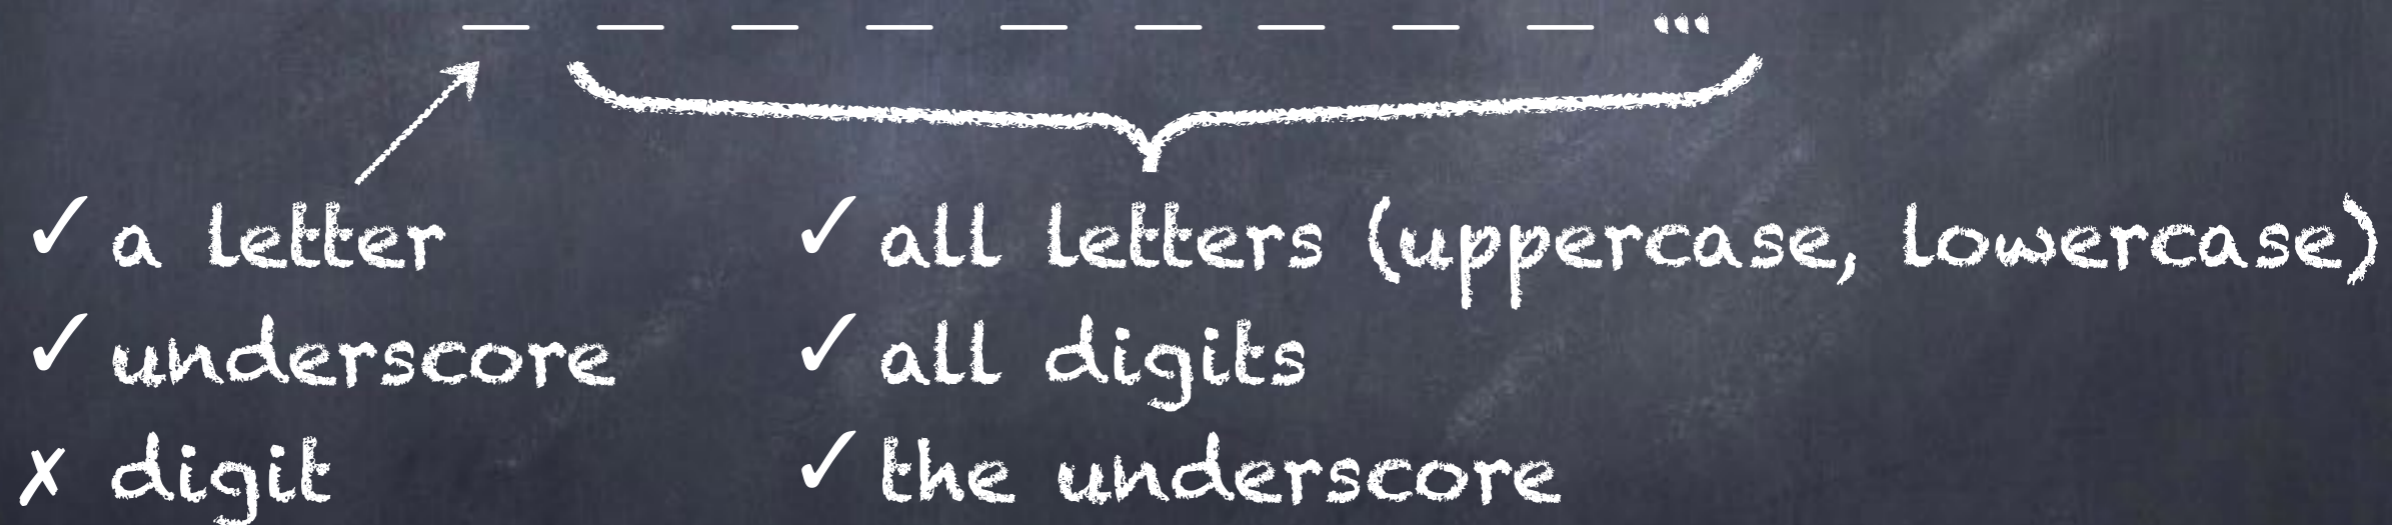 _ _ _ _ _ _ _ _ _ ...
✓ a letter
✓ underscore
✗ digit
✓ all letters (uppercase, lowercase)
✓ all digits
✓ the underscore